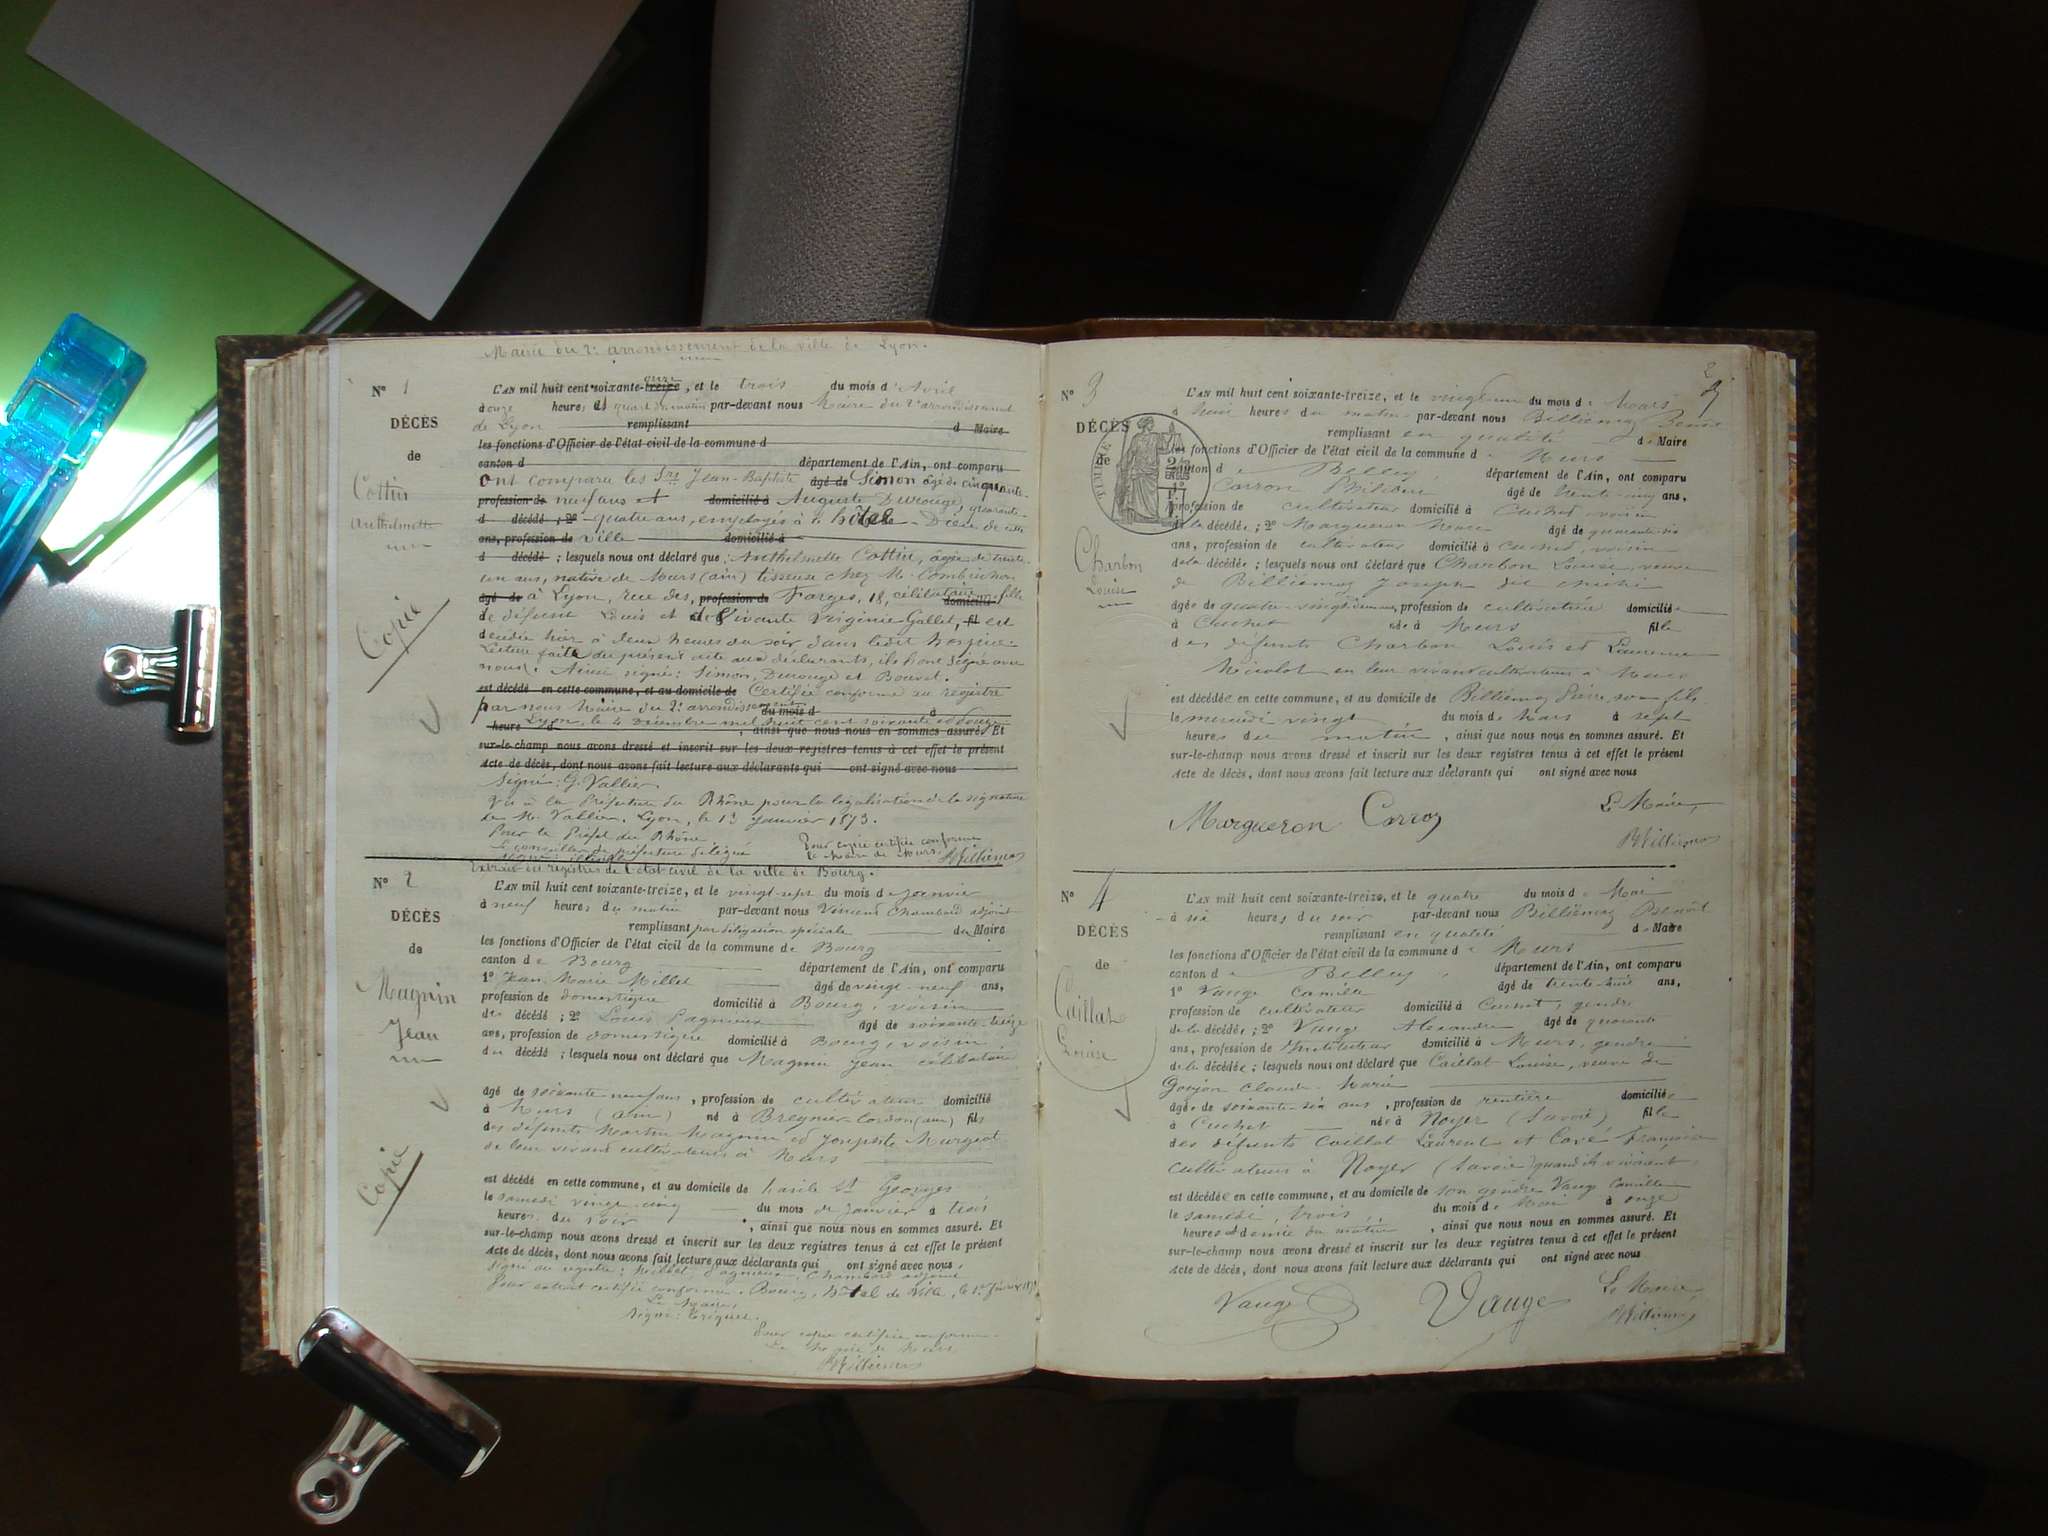 Mairie du 2e arrondissement de la ville de Lyon.
N° 1
DÉCÈS
de
Cottin
Anthelmette
Copie
L'AN mil huit cent soixante-treize, et le trois du mois d'Avril
d onze heures et quart du matin par-devant nous Maire du 2e arrondissement
de Lyon remplissant d Maire
les fonctions d'Officier de l'état civil de la commune d
canton d département de l'Ain, ont comparu
Ont comparu les Srs Jean-Baptiste âgé de Simon âgé de cinquante-
profession de neuf ans et domicilié à Auguste Durouge, quarante-
d décédé ; 2° quatre ans, employés à l'hôtel-Dieu de cette
ans, profession de ville domicilié à
d décédé ; lesquels nous ont déclaré que Anthelmette Cottin, âgée de trente-
un ans, native de Murs (ain) tisseuse chez M.
âgé de à Lyon, rue des, profession de Farges, 18, célibataire, fille domicilié
de défunt Louis et de vivante Virginie Gallet, est
décédée hier à deux heures du soir dans ledit hospice.
Lecture faite du présent acte aux déclarants, ils l'ont signé avec
nous. Ainsi signé: Simon, Durouge et Bouvet.
est décédé en cette commune, et au domicile de Certifié conforme au registre
par nous Maire du 2e arrondissement du mois d à
heure d Lyon, le 4 Décembre mil huit cent soixante et douze , ainsi que nous nous en sommes assuré. Et
sur-le-champ nous avons dressé et inscrit sur les deux registres tenus à cet effet le présent
Acte de décès, dont nous avons fait lecture aux déclarants qui ont signé avec nous
Signé: G. Vallier
Vu à la Préfecture du Rhône pour la légalisation de la signature
de M. Vallier. Lyon, le 13 Janvier 1873.
Pour le Préfet du Rhône
Le conseiller de préfecture délégué
Pour copie certifiée conforme
Le Maire de Murs, Billiemaz
Extrait du registres de l'état civil de la ville de Bourg.
N° 2
DÉCÈS
de
Magnin
Jean
Copie
L'AN mil huit cent soixante-treize, et le vingt-sept du mois de Janvier
à neuf heures du matin par-devant nous Vincent Chambard adjoint
remplissant par délégation spéciale du Maire
les fonctions d'Officier de l'état civil de la commune de Bourg
canton de Bourg département de l'Ain, ont comparu
1° Jean Marie Millet âgé de vingt-neuf ans,
profession de domestique domicilié à Bourg, voisin
du décédé ; 2° Louis Pagnieux âgé de soixante-treize
ans, profession de domestique domicilié à Bourg, voisin
du décédé ; lesquels nous ont déclaré que Magnin Jean célibataire
âgé de soixante-neuf ans, profession de cultivateur domicilié
à Murs (ain) né à Bregnier-Cordon (ain) fils
des défunts Martin Magnin et Josephte Murgiat
de leur vivant cultivateurs à Murs
est décédé en cette commune, et au domicile de hasile St Georges
le samedi vingt-cinq du mois de Janvier à trois
heures du soir , ainsi que nous nous en sommes assuré. Et
sur-le-champ nous avons dressé et inscrit sur les deux registres tenus à cet effet le présent
Acte de décès, dont nous avons fait lecture aux déclarants qui ont signé avec nous.
Signé au registre: Millet, Pagnieux, Chambard adjoint
Pour extrait certifié conforme. Bourg, hôtel de Ville, le 1er février
Le Maire,
Signé:
Pour copie certifiée conforme.
Le Maire de Murs
Billiemaz
N° 3
DÉCÈS
de
Charbon
Louise
L'AN mil huit cent soixante-treize, et le vingt-un du mois de Mars
à huit heures du matin par-devant nous Billiémaz Benoit
remplissant en qualité de Maire
les fonctions d'Officier de l'état civil de la commune de Murs
canton de Belley département de l'Ain, ont comparu
Carron Philibert âgé de trente-cinq ans,
profession de cultivateur domicilié à Cuchet, voisin
de la décédée ; 2° Margueron Marc âgé de quarante-six
ans, profession de cultivateur domicilié à Cuchet, voisin
de la décédée ; lesquels nous ont déclaré que Charbon Louise, veuve
de Billiémaz Joseph dit
âgée de quatre-vingt-deux ans, profession de cultivatrice domiciliée
à Cuchet née à Murs fille
des défunts Charbon Louis et Laurence
Nicolot en leur vivant cultivateurs à Murs
est décédée en cette commune, et au domicile de Billiémaz Pierre, son fils,
le mercredi vingt du mois de Mars à sept
heures du matin , ainsi que nous nous en sommes assuré. Et
sur-le-champ nous avons dressé et inscrit sur les deux registres tenus à cet effet le présent
Acte de décès, dont nous avons fait lecture aux déclarants qui ont signé avec nous
Margueron Carron
Le Maire,
Billiemaz
N° 4
DÉCÈS
de
Caillat
Louise
L'AN mil huit cent soixante-treize, et le quatre du mois de Mai
à six heures du soir par-devant nous Billiémaz Benoit
remplissant en qualité de Maire
les fonctions d'Officier de l'état civil de la commune de Murs
canton de Belley, département de l'Ain, ont comparu
1° Vauge Camille âgé de trente-huit ans,
profession de cultivateur domicilié à Cuchet, gendre
de la décédée ; 2° Vauge Alexandre âgé de quarante
ans, profession de Instituteur domicilié à Murs, gendre
de la décédée ; lesquels nous ont déclaré que Caillat Louise, veuve de
Goujon Claude-Marie
âgée de soixante-six ans, profession de rentière domiciliée
à Cuchet née à Noyer (Savoie) fille
des défunts Caillat Laurent et Cavé Françoise
cultivateurs à Noyer (Savoie) quand ils vivaient
est décédée en cette commune, et au domicile de son gendre Vauge Camille
le samedi, trois du mois de Mai à onze
heures et demie du matin , ainsi que nous nous en sommes assuré. Et
sur-le-champ nous avons dressé et inscrit sur les deux registres tenus à cet effet le présent
Acte de décès, dont nous avons fait lecture aux déclarants qui ont signé avec nous
Vauge Vauge
Le Maire
Billiemaz